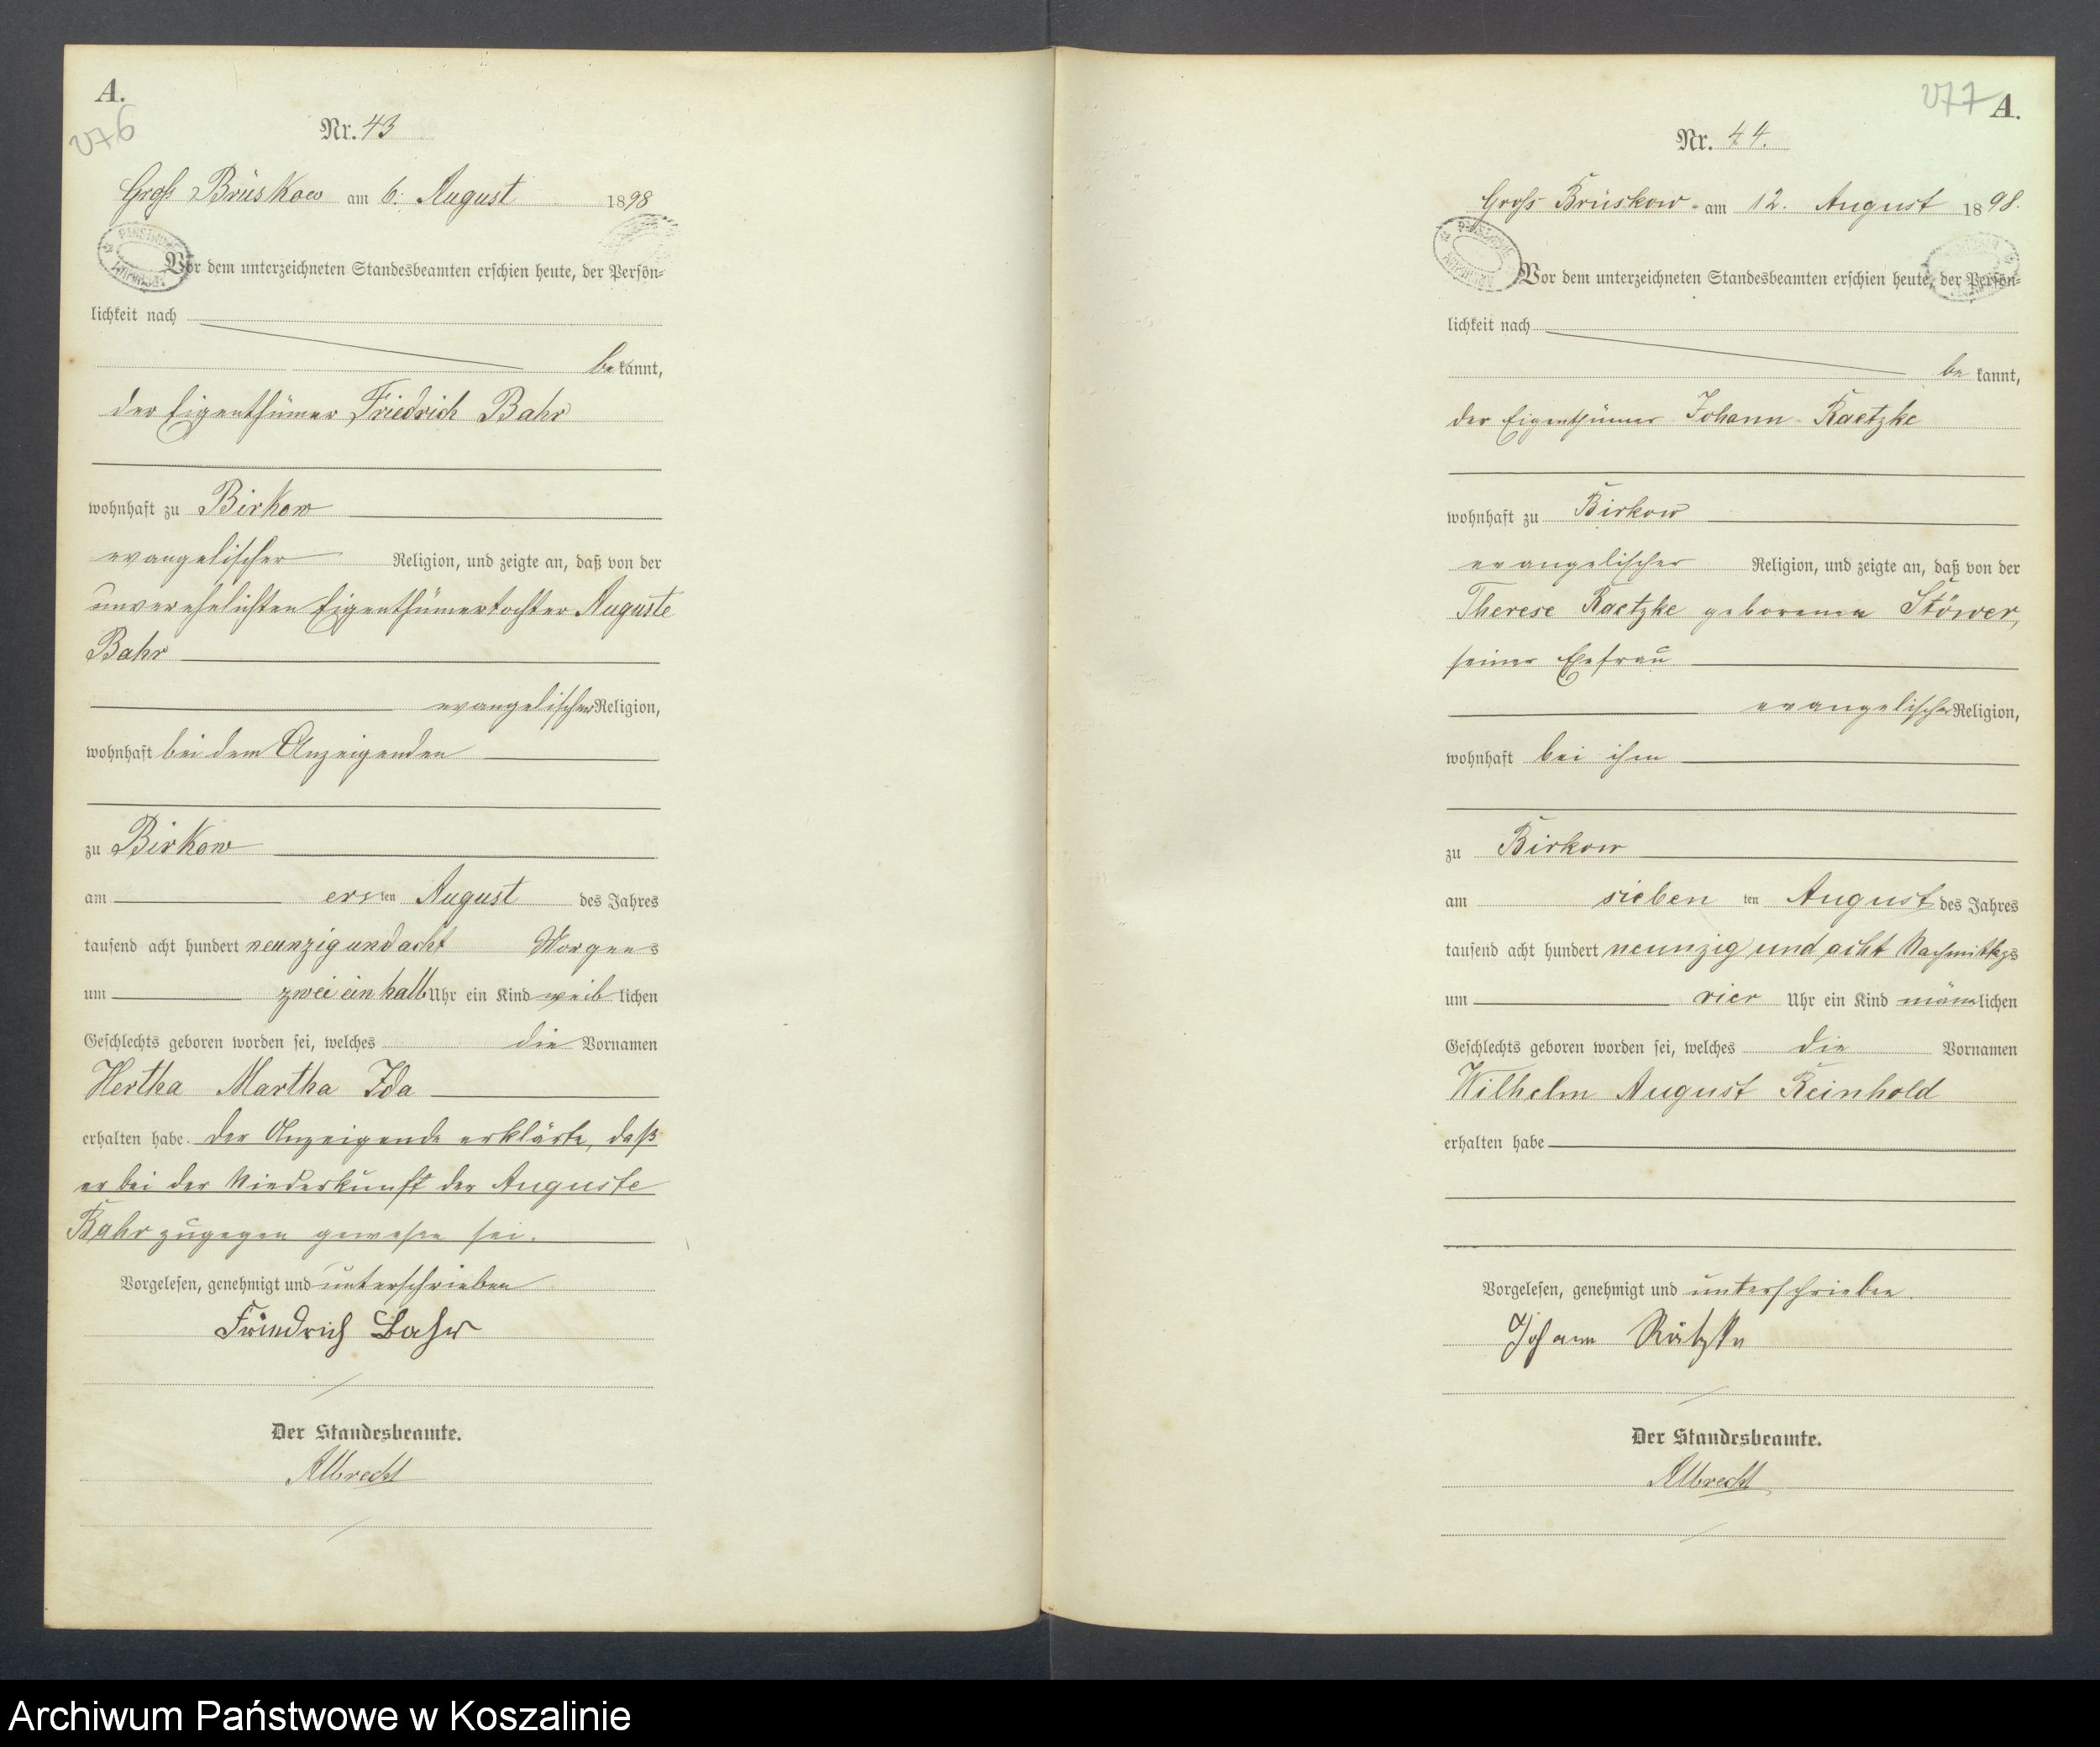 A.
276
Nr. 43
Groß Brüskow am 6. August 1898
Vor dem unterzeichneten Standesbeamten erschien heute, der Persön-
lichkeit nach
bekannt,
der Eigenthümer Friedrich Bahr
wohnhaft zu Birkow
evangelischer Religion, und zeigte an, daß von der
unverehelichten Eigenthümertochter Auguste
Bahr
evangelischer Religion,
wohnhaft bei dem Anzeigenden
zu Birkow
am ersten August des Jahres
tausend acht hundert neunzig und acht Morgens
um zwei ein halb Uhr ein Kind weiblichen
Geschlechts geboren worden sei, welches die Vornamen
Hertha Martha Ida
erhalten habe. Der Anzeigende erklärte, daß
er bei der Niederkunft der Auguste
Bahr zugegen gewesen sei.
Vorgelesen, genehmigt und unterschrieben
Friedrich Bahr
Der Standesbeamte.
Albrecht
277
A.
Nr. 44.
Groß Brüskow am 12. August 1898.
Vor dem unterzeichneten Standesbeamten erschien heute, der Persön-
lichkeit nach
bekannt,
der Eigenthümer Johann Raetzke
wohnhaft zu Birkow
evangelischer Religion, und zeigte an, daß von der
Therese Raetzke geborenen Stöwer,
seiner Ehefrau
evangelischer Religion,
wohnhaft bei ihm
zu Birkow
am siebenten August des Jahres
tausend acht hundert neunzig und acht Nachmittags
um vier Uhr ein Kind männlichen
Geschlechts geboren worden sei, welches die Vornamen
Wilhelm August Reinhold
erhalten habe
Vorgelesen, genehmigt und unterschrieben.
Johann Rätzke
Der Standesbeamte.
Albrecht
Archiwum Państwowe w Koszalinie